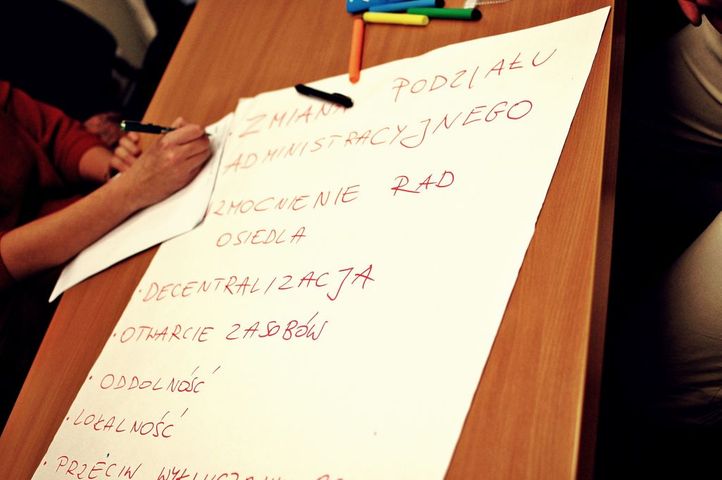 · ZMIANA PODZIAŁU
ADMINISTRACYJNEGO
WZMOCNIENIE RAD
OSIEDLA
· DECENTRALIZACJA
· OTWARCIE ZASOBÓW
· ODDOLNOŚĆ
· LOKALNOŚĆ
· PRZECIW